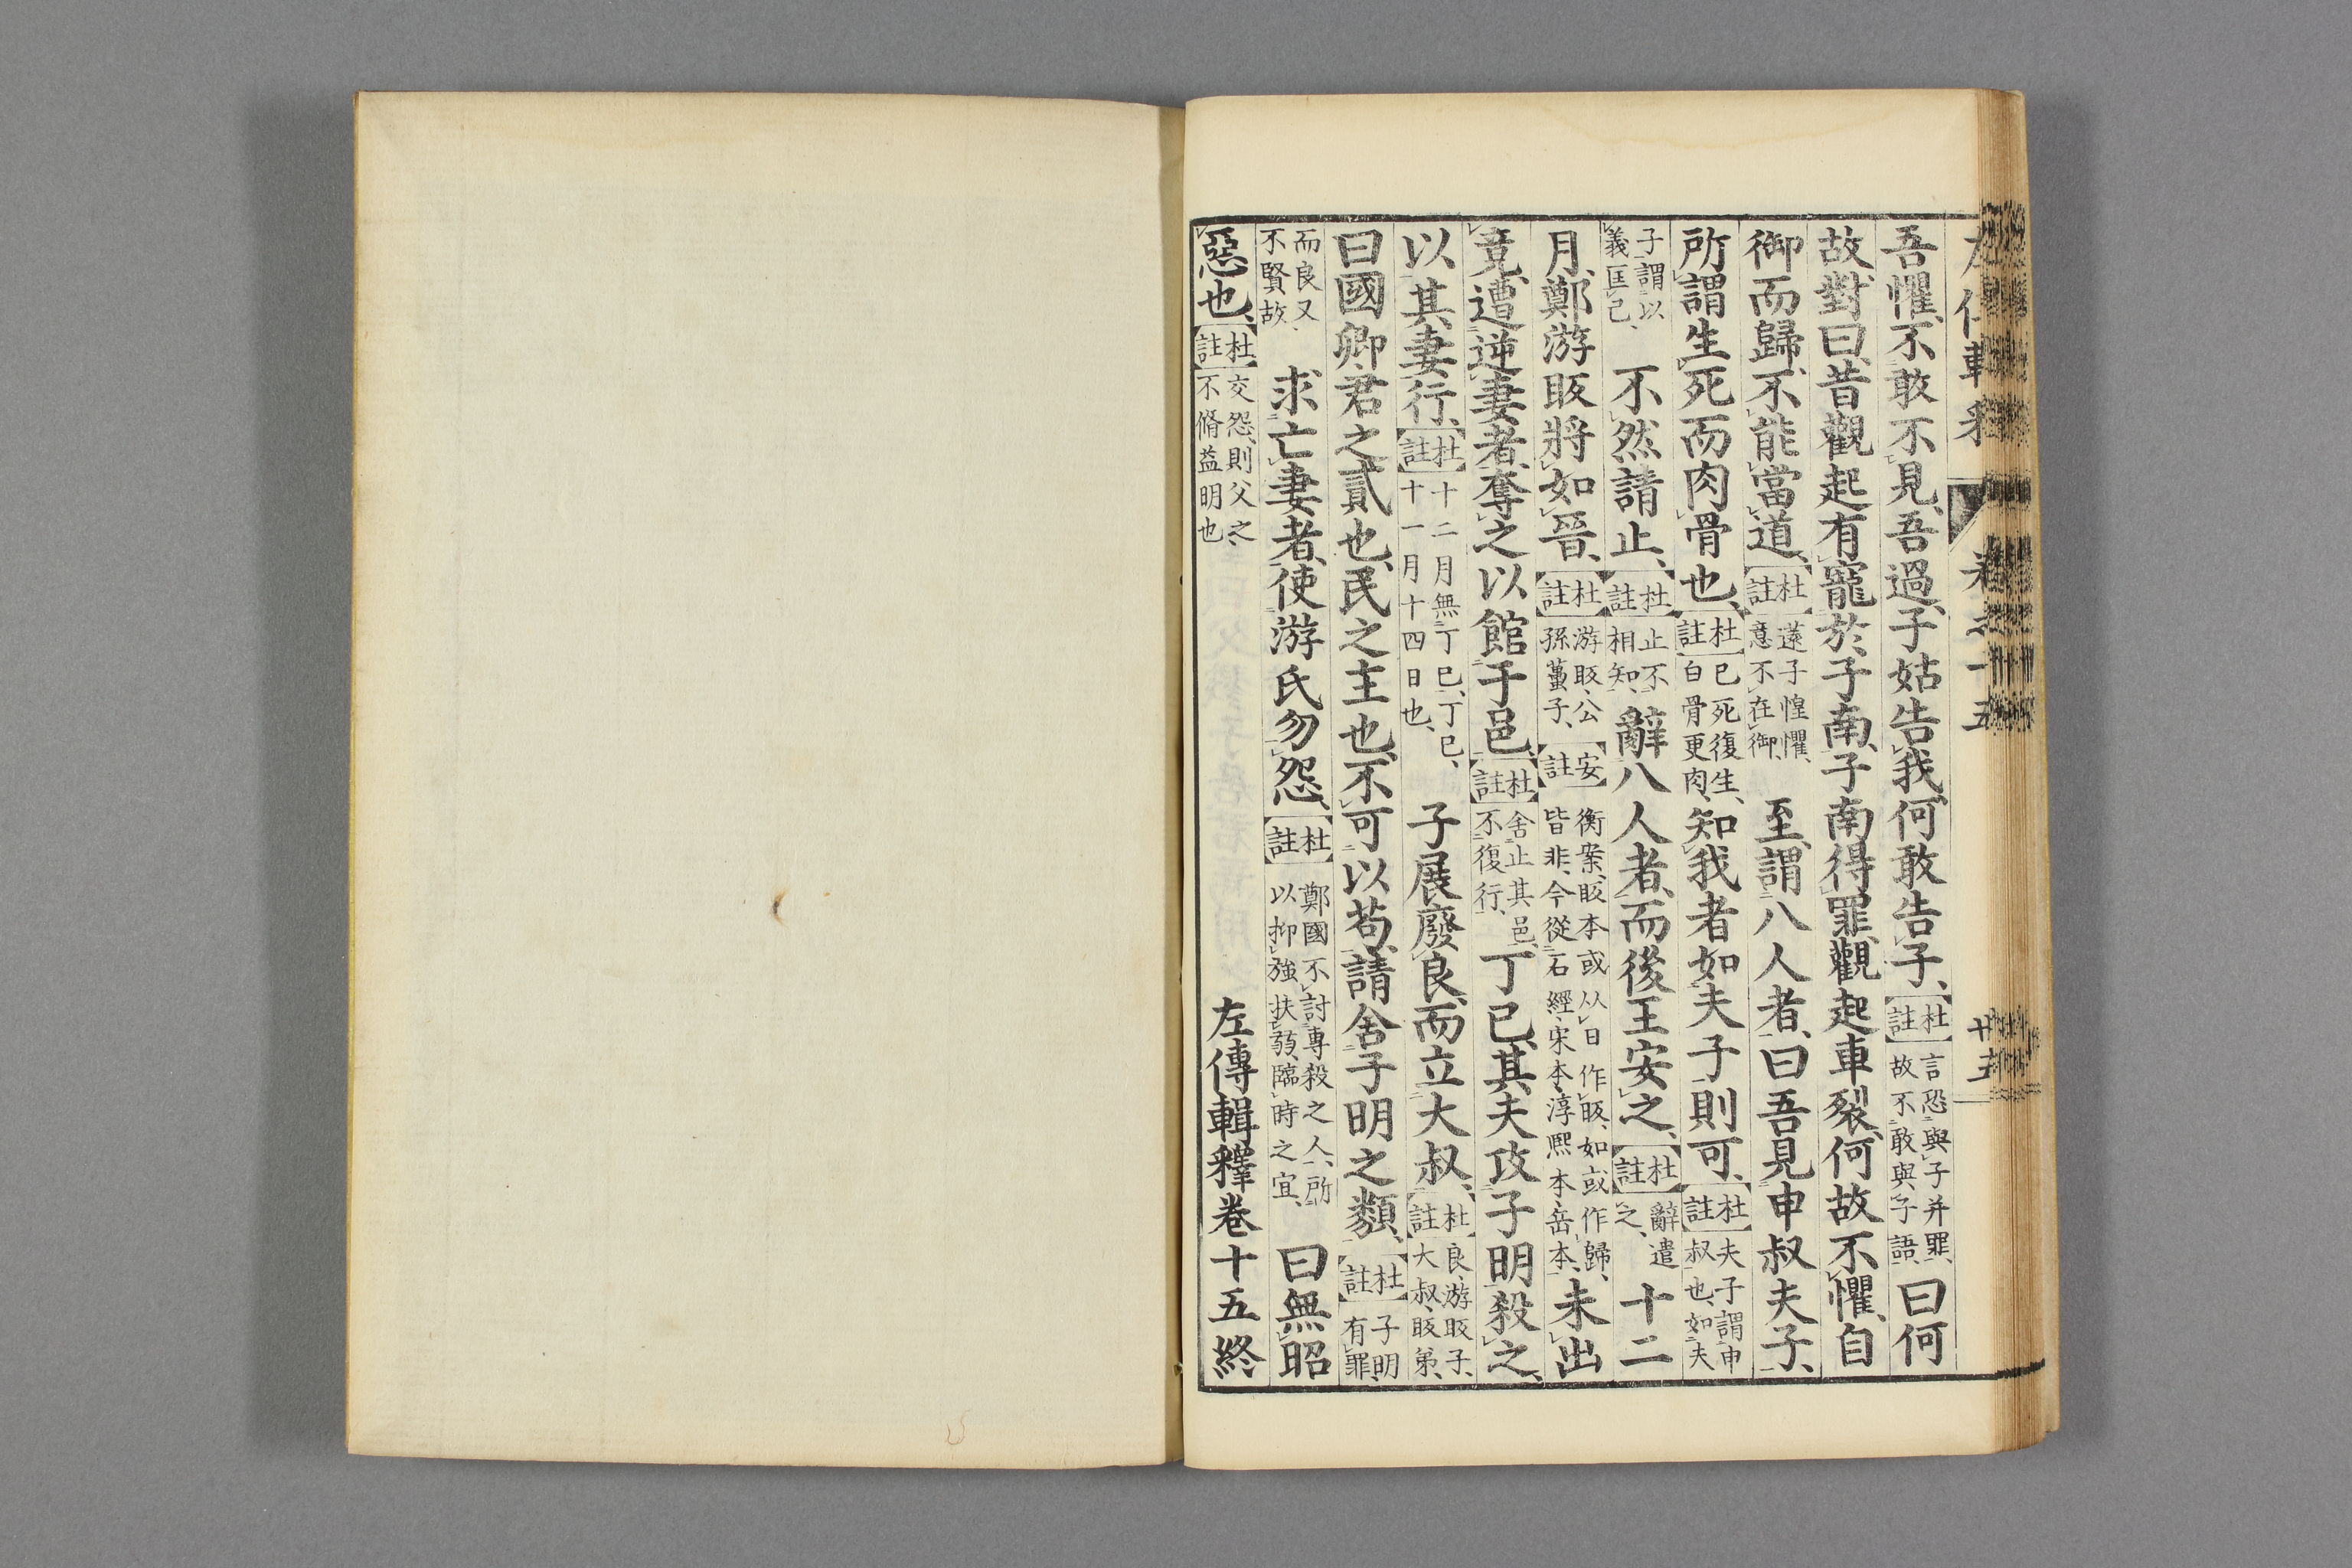 吾懼、不敢不見、吾過、子姑告我、何敢告子、【杜註】言恐與子并罪、故不敢與子語、曰何
故、對曰、昔觀起有寵於子南、子南得罪、觀起車裂、何故不懼、自
御而歸、不能當道、【杜註】薳子惶懼、意不在御、至、謂八人者、曰吾見申叔夫子、
所謂生死而肉骨也、【杜註】已死復生、白骨更肉、知我者如夫子則可、【杜註】夫子謂申叔也、如夫
子謂以義匡己、不然請止、【杜註】止不相知、辭八人者、而後王安之、【杜註】辭遣之、十二
月、鄭游眅將如晉、【杜註】游眅、公孫蠆子、【安註】衡案、眅本或从日作昄、如或作歸、皆非、今從石經、宋本、淳熙本、岳本、未出
竟、遭逆妻者、奪之以館于邑、【杜註】舍止其邑、不復行、丁巳、其夫攻子明殺之、
以其妻行、【杜註】十二月無丁巳、丁巳、十一月十四日也、子展廢良、而立大叔、【杜註】良、游眅子、大叔、眅弟、
曰國卿、君之貳也、民之主也、不可以苟、請舍子明之類、【杜註】子明有罪、
而良又不賢故、求亡妻者、使游氏勿怨、【杜註】鄭國不討專殺之人、所以抑強扶弱、臨時之宜、曰無昭
惡也、【杜註】交怨、則父之不脩益明也
左傳輯釋卷十五終
卷之十五
廿五